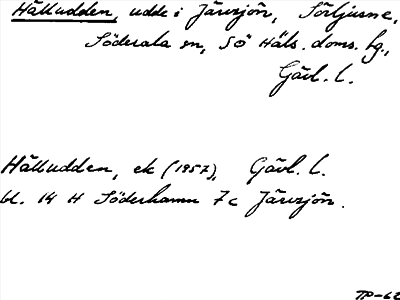 Hälludden, udde i Järvsjön, Sörljusne,
Söderala sn, SÖ Häls. doms. fg.,
Gävl. l.
Hälludden, ek (1957), Gävl. l.
bl. 14 H Söderhamn 7 c Järvsjön.
TP-62